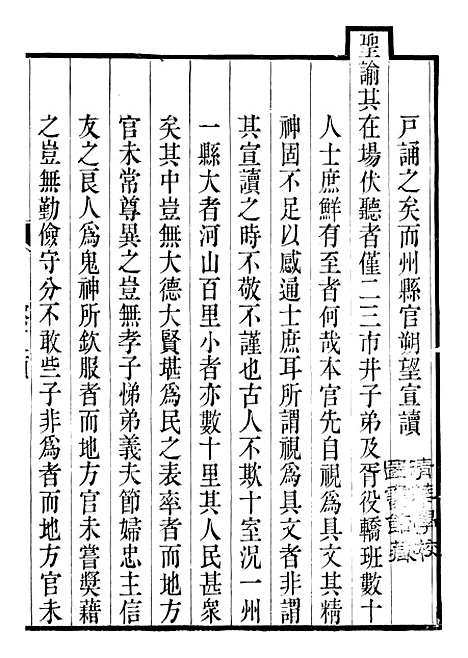 戸誦之矣而州縣官朔望宣讀
聖諭其在場伏聽者僅二三市井子弟及胥役轎班數十
人士庶鮮有至者何哉本官先自視爲具文其精
神固不足以感通士庶耳所謂視爲具文者非謂
其宣讀之時不敬不謹也古人不欺十室况一州
一縣大者河山百里小者亦數十里其一人民甚衆
矣其中豈無大德大賢堪爲民之表率者而地方
官未常尊異之豈無孝子悌弟義夫節婦忠主信
友之良人爲鬼神所欽服者而地方官未嘗奬藉
之豈無勤儉守分不敢些子非爲者而地方官未
清華學校
圖書館藏